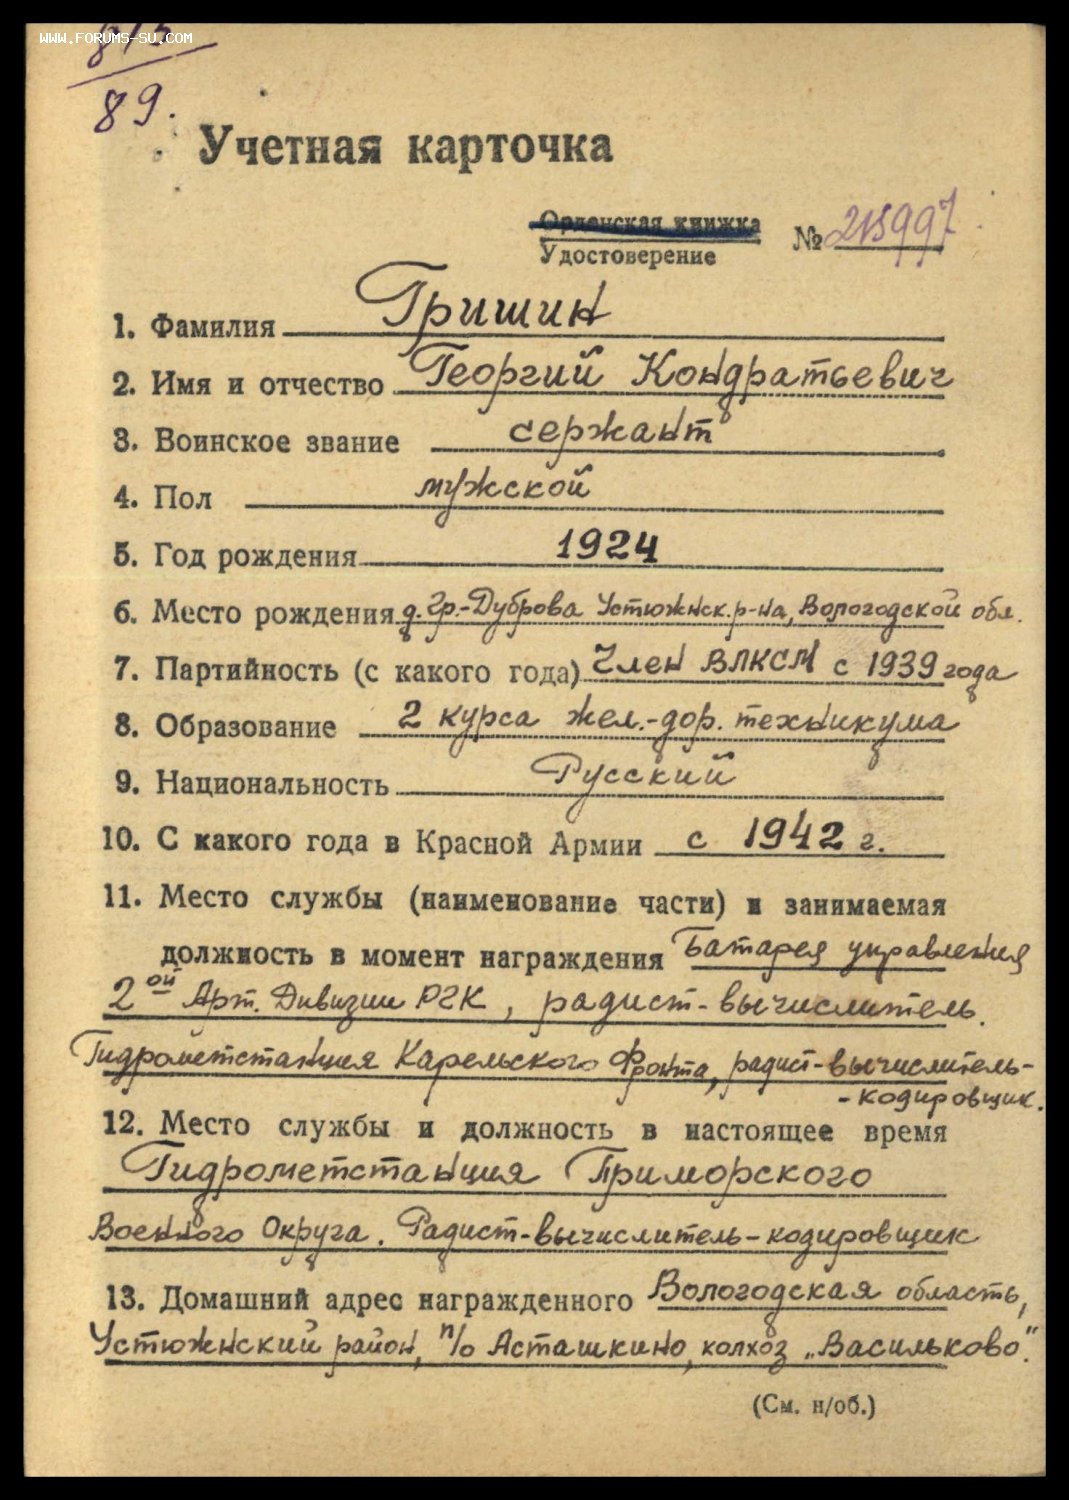 www.forums-su.com
89.
Учетная карточка
Орденская книжка
Удостоверение
№ 215997
1. Фамилия Гришин
2. Имя и отчество Георгий Кондратьевич
3. Воинское звание сержант
4. Пол мужской
5. Год рождения 1924
6. Место рождения д. Гр.-Дуброва Устюжнск. р-на, Вологодской обл.
7. Партийность (с какого года) Член ВЛКСМ с 1939 года
8. Образование 2 курса жел.-дор. техникума
9. Национальность Русский
10. С какого года в Красной Армии с 1942 г.
11. Место службы (наименование части) и занимаемая
должность в момент награждения Батарея управления
2ой Арт. Дивизии РГК, радист-вычислитель.
Гидрометстанция Карельского Фронта, радист-вычислитель-
-кодировщик.
12. Место службы и должность в настоящее время
Гидрометстанция Приморского
Военного Округа. Радист-вычислитель-кодировщик
13. Домашний адрес награжденного Вологодская область,
Устюженский район, п/о Асташкино, колхоз „Васильково".
(См. н/об.)